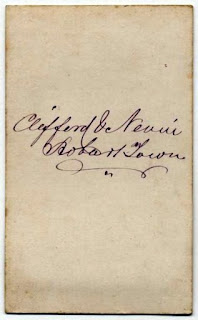 Clifford & Nevin
Robert Town